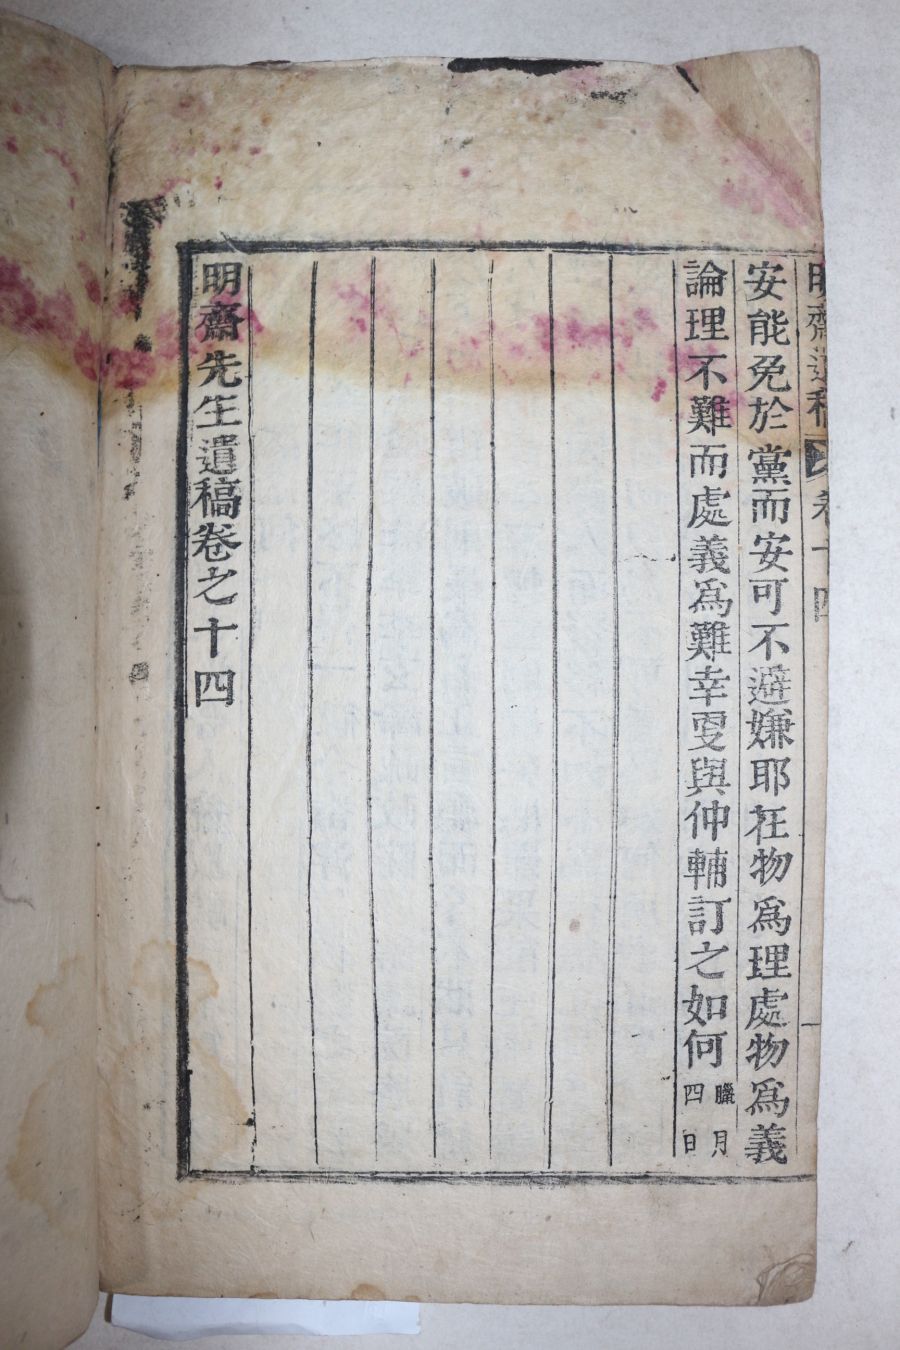 明齋遺稿 卷十四
安能免於黨而安可不避嫌耶在物爲理處物爲義
論理不難而處義爲難幸更與仲輔訂之如何 臘月四日
明齋先生遺稿卷之十四